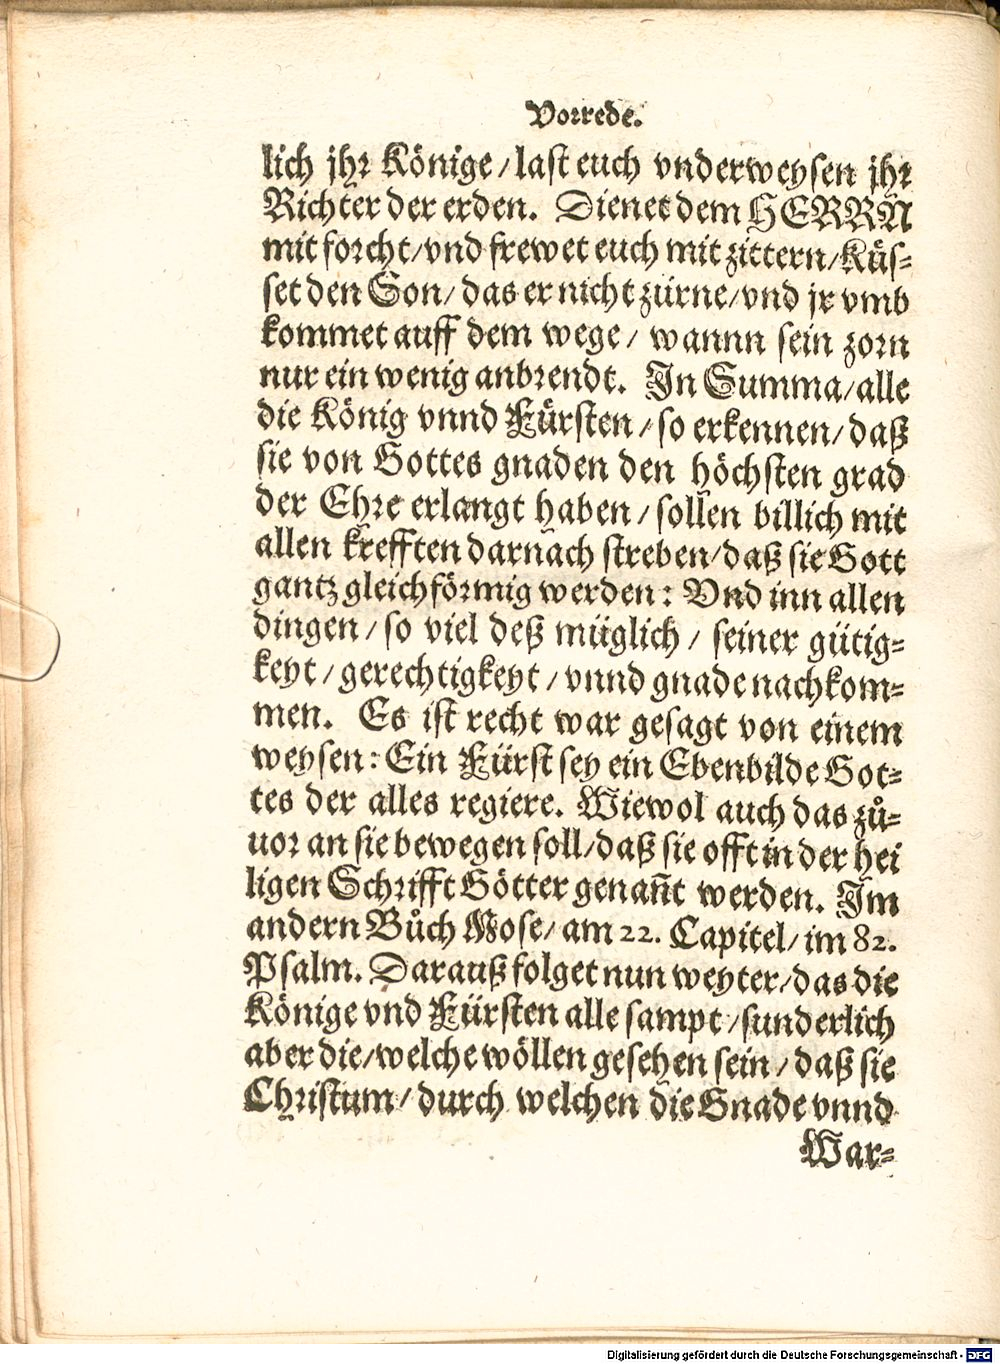 Vorrede.
lich jhr Könige/last euch vnderweysen jhr
Richter der erden. Dienet dem HERRN
mit forcht/vnd frewet euch mit zittern/Küs-
set den Son/ das er nicht zürne/vnd jr vmb
kommet auff dem wege/ wannn sein zorn
nur ein wenig anbrendt. In Summa/alle
die König vnnd Fürsten/so erkennen/daß
sie von Gottes gnaden den höchsten grad
der Ehre erlangt haben/sollen billich mit
allen krefften darnach streben/daß sie Gott
gantz gleichförmig werden: Vnd inn allen
dingen/so viel deß müglich/ seiner gütig-
keyt/gerechtigkeyt/vnnd gnade nachkom-
men. Es ist recht war gesagt von einem
weysen: Ein Fürst sey ein Ebenbilde Got-
tes der alles regiere. Wiewol auch das zů-
uor an sie bewegen soll/daß sie offt in der hei
ligen Schrifft Götter genañt werden. Im
andern Bůch Mose/am 22. Capitel/im 82.
Psalm. Darauß folget nun weyter/das die
Könige vnd Fürsten alle sampt/sunderlich
aber die/welche wöllen gesehen sein/daß sie
Christum/durch welchen die Gnade vnnd
War-
Digitalisierung gefördert durch die Deutsche Forschungsgemeinschaft - DFG